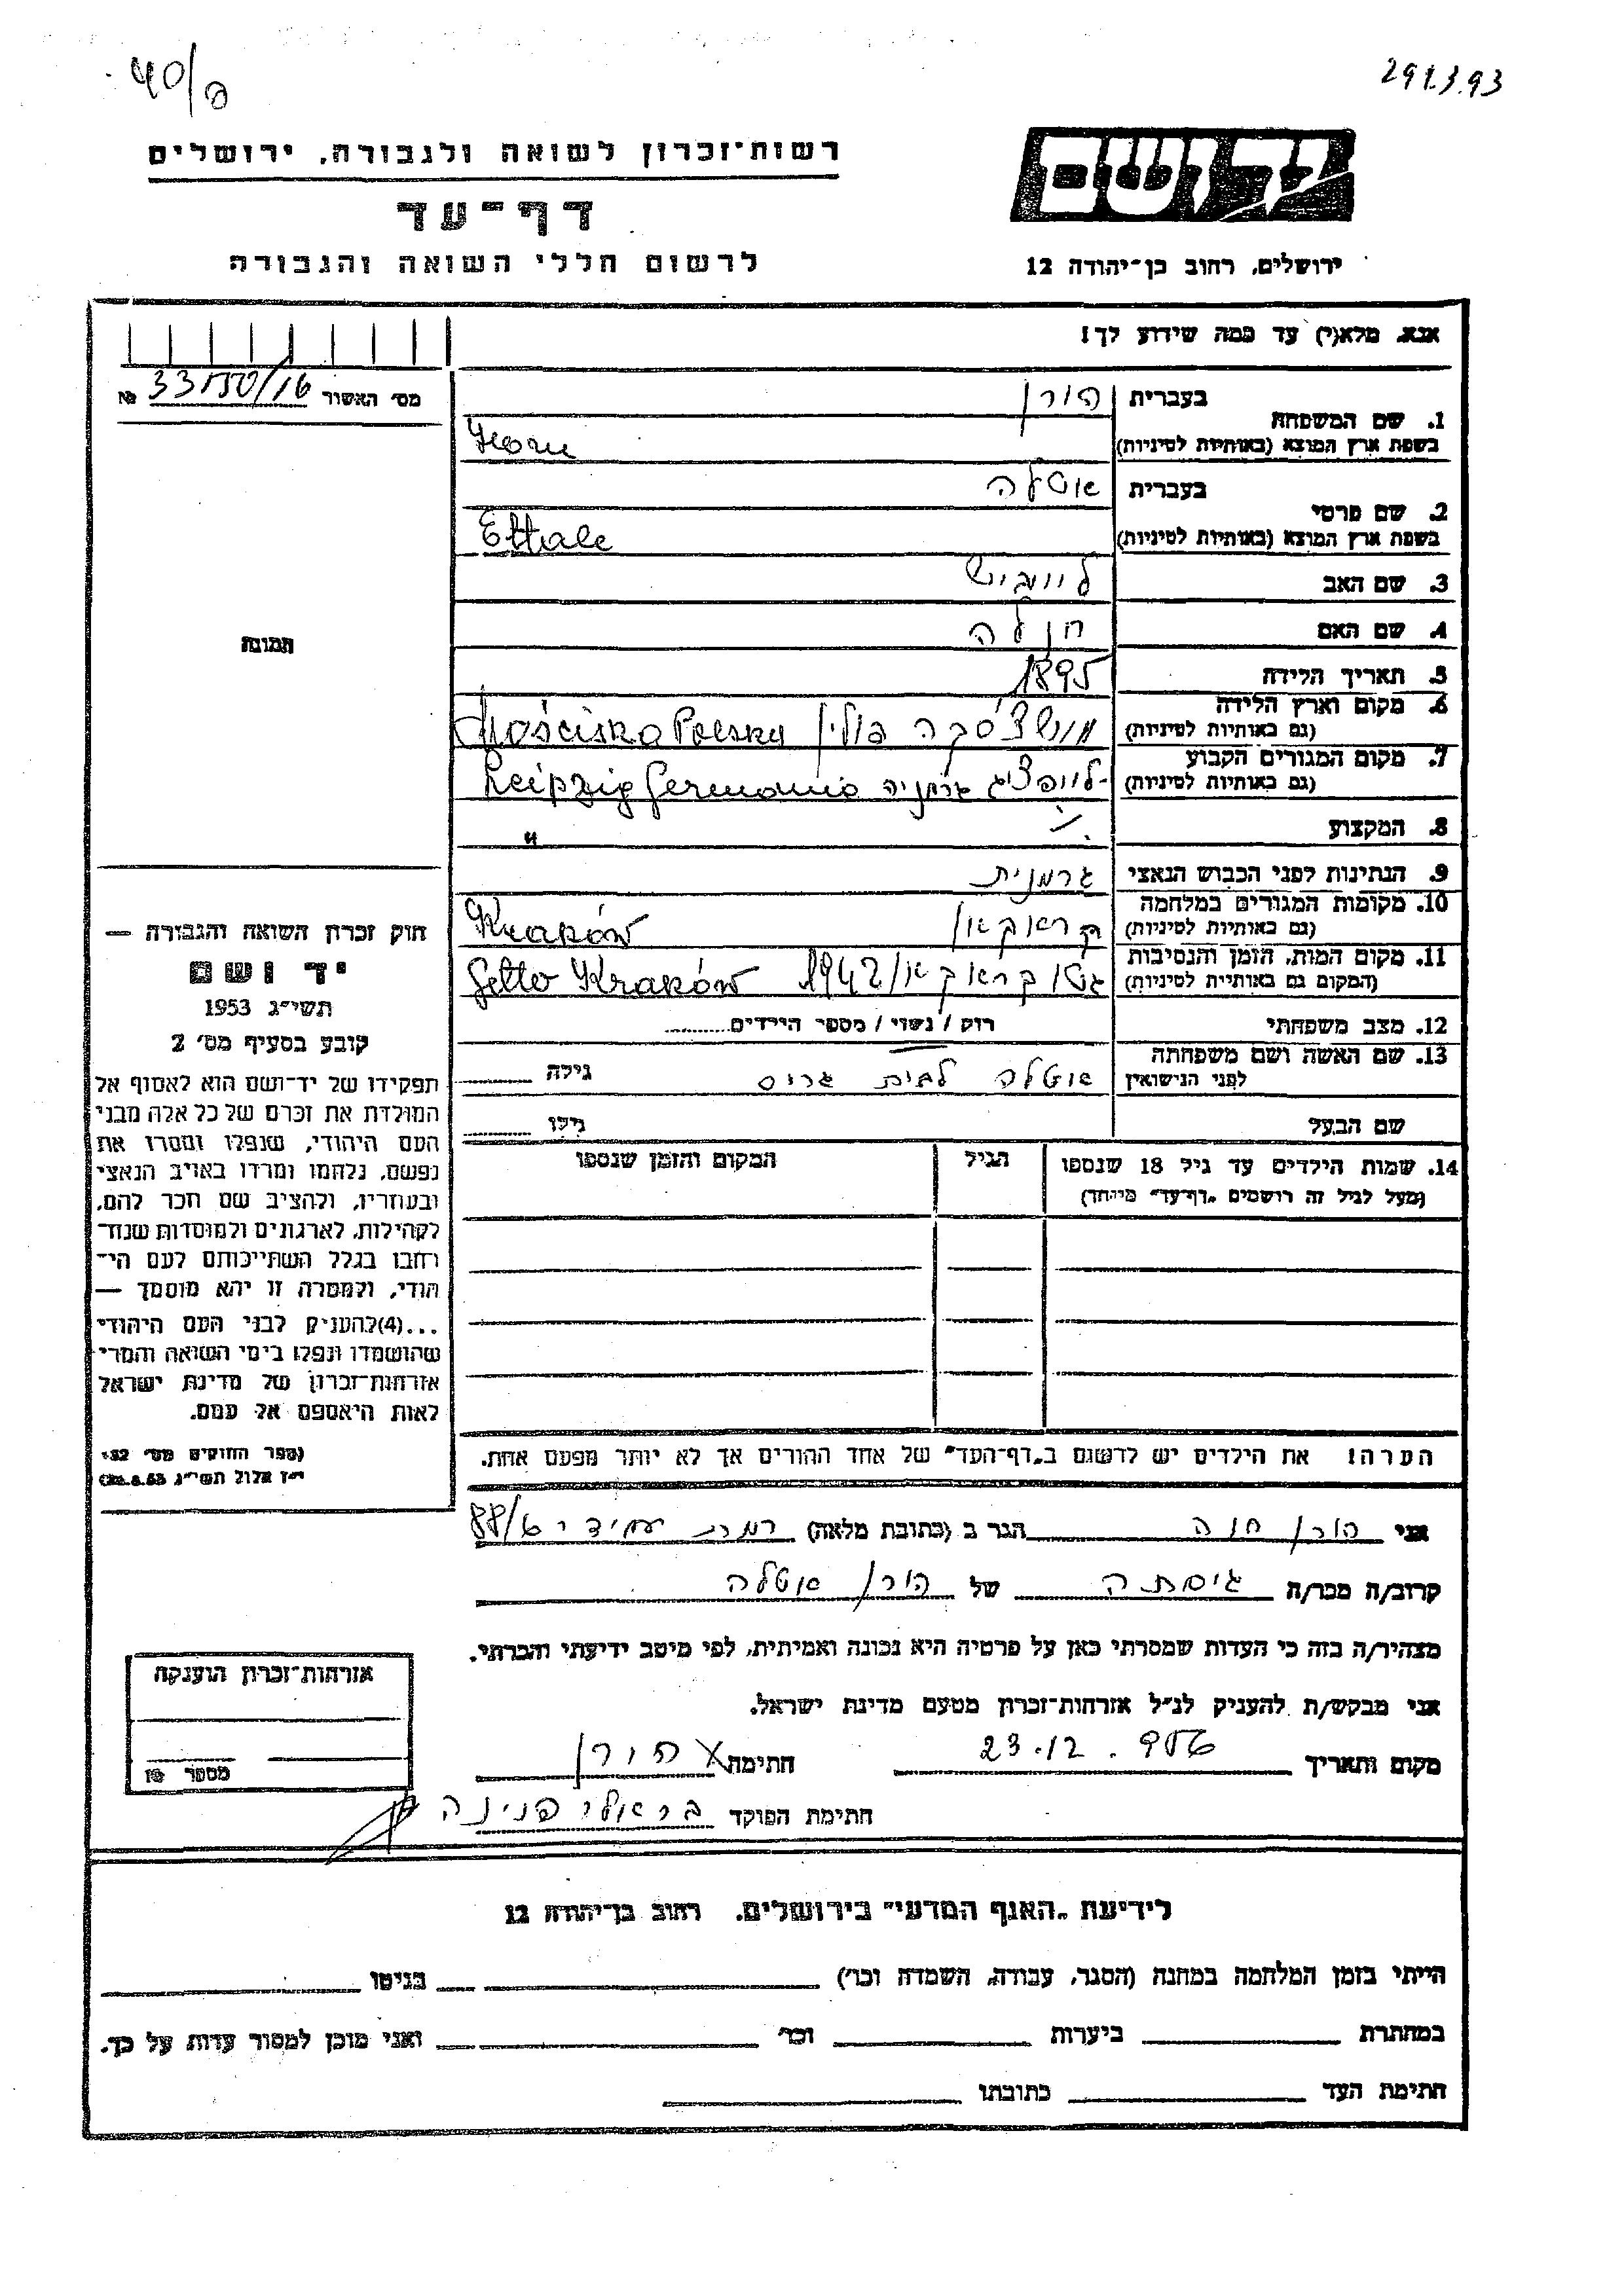 40/מ
291.3.93
רשות־זכרון לשואה ולגבורה, ירושלים
יד ושם
דף־עד
לרשום חללי השואה והגבורה
ירושלים, רחוב בן־יהודה 12
אנא, מלא(י) עד כמה שידוע לך!
מס׳ האשור № 33150/16
1. שם המשפחה
בעברית הורן
בשפת ארץ המוצא (באותיות לטיניות) Horn
2. שם פרטי
בעברית אטלה
בשפת ארץ המוצא (באותיות לטיניות) Ettale
3. שם האב לייביש
4. שם האם חנלה
תמונה
5. תאריך הלידה 1895
6. מקום וארץ הלידה
(גם באותיות לטיניות) מושצ׳סקה פולין Mościska Polska
7. מקום המגורים הקבוע
(גם באותיות לטיניות) לייפציג גרמניה Leipzig Germania
8. המקצוע
9. הנתינות לפני הכבוש הנאצי גרמנית
10. מקומות המגורים במלחמה
(גם באותיות לטיניות) קראקאו Kraków
11. מקום המות, הזמן והנסיבות
(המקום גם באותיות לטיניות) גטו קראקאו 1942 Getto Kraków
12. מצב משפחתי רוק / נשוי / מספר הילדים
13. שם האשה ושם משפחתה
לפני הנישואין אטלה לבית גרוס גילה
שם הבעל גילו
14. שמות הילדים עד גיל 18 שנספו הגיל המקום והזמן שנספו
(מעל לגיל זה רושמים „דף־עד״ מייחד)
חוק זכרון השואה והגבורה —
יד ושם
תשי״ג 1953
קובע בסעיף מס׳ 2
תפקידו של יד־ושם הוא לאסוף אל
המולדת את זכרם של כל אלה מבני
העם היהודי, שנפלו ומסרו את
נפשם, נלחמו ומרדו באויב הנאצי
ובעוזריו, ולהציב שם וזכר להם,
לקהילות, לארגונים ולמוסדות שנח־
רחבו בגלל השתייכותם לעם הי־
הודי, ולמטרה זו יהא מוסמך —
...(4)להעניק לבני העם היהודי
שהושמדו ונפלו בימי השואה והמרי
אזרחות־זכרון של מדינת ישראל
לאות היאספם אל עמם.
(ספר החוקים מס׳ 132,
י״ז אלול תשי״ג 28.8.53)
הערה! את הילדים יש לרשום ב„דף־העד״ של אחד ההורים אך לא יותר מפעם אחת.
אני הורן חנה הגר ב (כתובת מלאה) רמת עמידר 88/
קרוב/ה מכר/ה גיסתה של הורן אטלה
מצהיר/ה בזה כי העדות שמסרתי כאן על פרטיה היא נכונה ואמיתית, לפי מיטב ידיעתי והכרתי.
אני מבקש/ת להעניק לנ״ל אזרחות־זכרון מטעם מדינת ישראל.
מקום ותאריך 23.12. חתימה הורן
חתימת הפוקד בראלי פנינה
אזרחות־זכרון הוענקה
מספר №
לידיעת „האגף המדעי״ בירושלים, רחוב בן־יהודה 12
הייתי בזמן המלחמה במחנה (הסגר, עבודה, השמדה וכו׳) בגיטו
במחתרת ביערות וכו׳ ואני מוכן למסור עדות על כך.
חתימת העד כתובתו